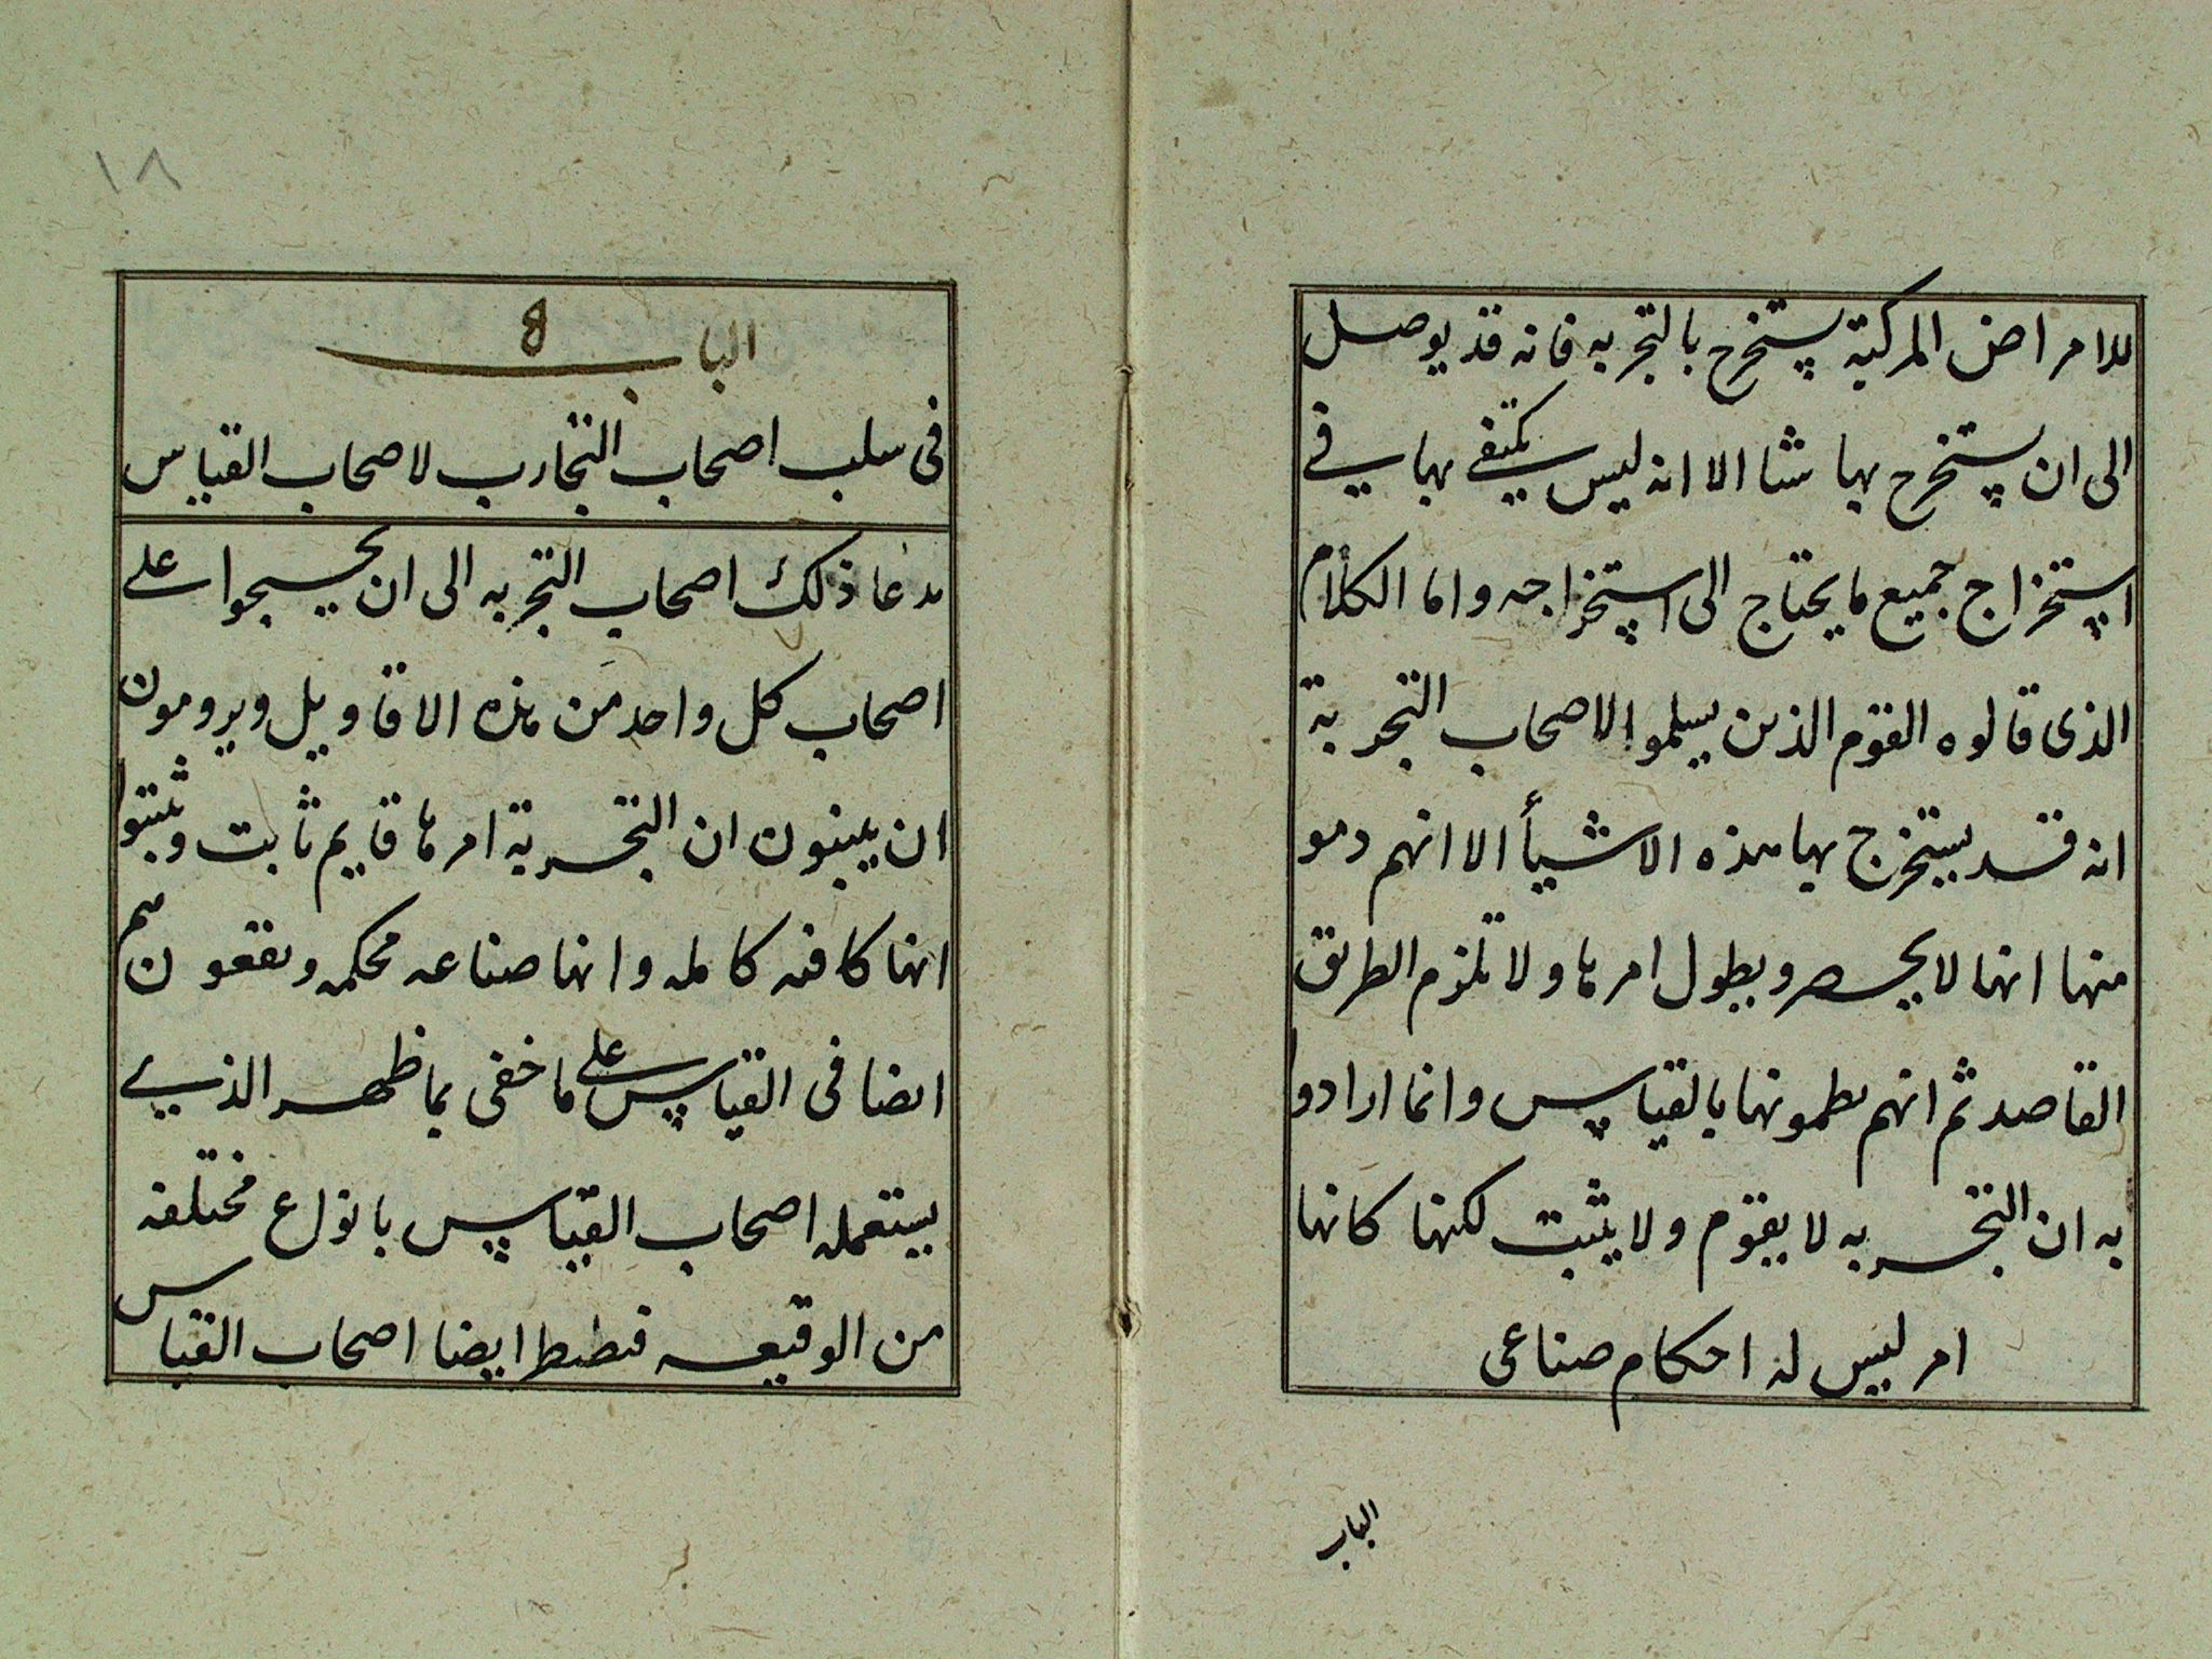 للامراض المركبة يستخرج بالتجربه فانه قد يوصل
الى ان يستخرج بها شا الا انه ليس يكتفى بها في
استخراج جميع ما يحتاج الى استخراجه واما الكلام
الذى قالوه القوم الذين يسلموا لاصحاب التجربة
انه قد يستخرج بها هذه الاشيأ الا انهم دمو
منها انها لا يحصر ويطول امرها ولا تلزم الطريق
القاصد ثم انهم بالقياس وانما ارادوا
به ان التجربه لا يقوم ولا يثبت لكنها كانها
امر ليس له احكام صناعى
الباب
١٨
الباب 8
فى سلب اصحاب التجارب لاصحاب القياس
فدعا ذلك اصحاب التجربه الى ان يحسجوا على
اصحاب كل واحد من هذه الاقاويل ويرومون
ان يبينون ان التجربة امرها قايم ثابت وثبتوا
انها كافىه كامله وانها صناعه محكمه ويقعون هم
ايضا فى القياس على ما خفى بما ظهر الذي
يستعمله اصحاب القياس بانواع مختلفه
من الوقيعه ايضا اصحاب القياس